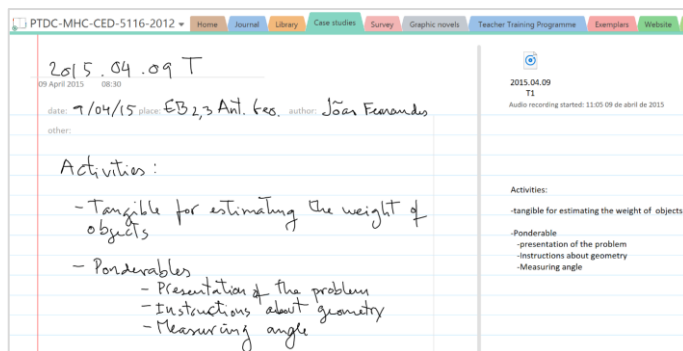 PTDC-MHC-CED-5116-2012 Home Journal Library Case studies Survey Graphic novels Teacher Training Programme Exemplars Website
2015.04.09 T
09 April 2015 08:30
date: 9/04/15 place: EB 2,3 Ant. Fer. author: João Fernandes
other:
Activities:
- Tangible for estimating the weight of
objects
- Ponderables
- Presentation of the problem
- Instructions about geometry
- Measuring angle
2015.04.09
T1
Audio recording started: 11:05 09 de abril de 2015
Activities:
-tangible for estimating the weight of objects
-Ponderable
-presentation of the problem
-Instructions about geometry
-Measuring angle